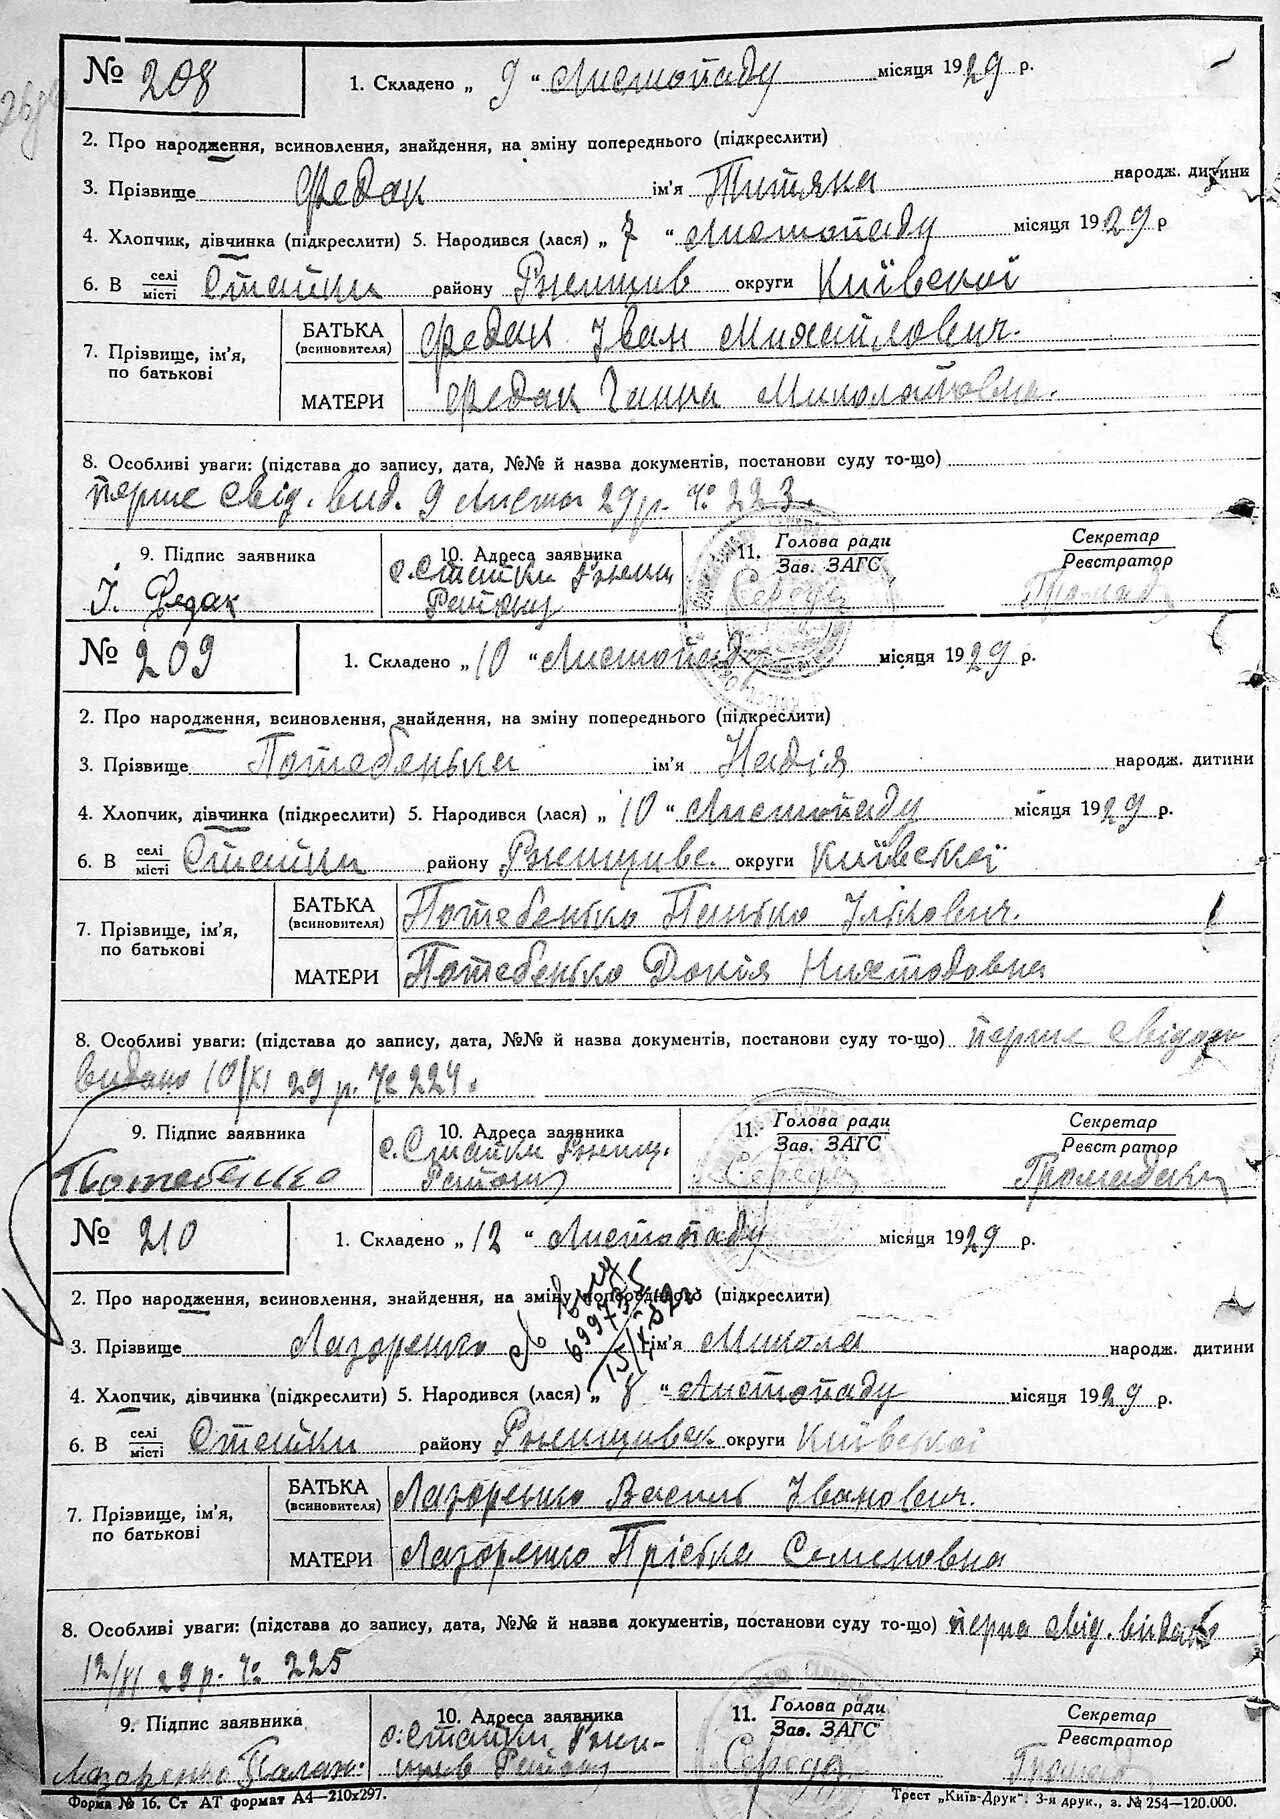 № 208
1. Складено „ 9 “ Листопаду місяця 1929 р.
2. Про народження, всиновлення, знайдення, на зміну попереднього (підкреслити)
3. Прізвище Федак ім’я Титяна народж. дитини
4. Хлопчик, дівчинка (підкреслити) 5. Народився (лася) „ 7 “ Листопаду місяця 1929 р
6. В селі місті Стайки району Ржищив округи Київскої
7. Прізвище, ім’я, по батькові
БАТЬКА (всиновителя) Федак Іван Михайлович.
МАТЕРИ Федак Ганна Миколаївна.
8. Особливі уваги: (підстава до запису, дата, №№ й назва документів, постанови суду то-що)
перше свід. вид. 9 Листоп 29 р. № 223.
9. Підпис заявника
10. Адреса заявника
11. Голова ради Зав. ЗАГС
Секретар Реєстратор
І. Федак
с. Стайки Ржищ Району
Середа
Громад
№ 209
1. Складено „ 10 “ Листопаду місяця 1929 р.
2. Про народження, всиновлення, знайдення, на зміну попереднього (підкреслити)
3. Прізвище Потебенька ім’я Надія народж. дитини
4. Хлопчик, дівчинка (підкреслити) 5. Народився (лася) „ 10 “ Листопаду місяця 1929 р.
6. В селі місті Стайки району Ржищивс. округи Київської
7. Прізвище, ім’я, по батькові
БАТЬКА (всиновителя) Потебенько Панько Ількович.
МАТЕРИ Потебенько Докія
8. Особливі уваги: (підстава до запису, дата, №№ й назва документів, постанови суду то-що) перше свідоц
видано 10/XI 29 р. № 224.
9. Підпис заявника
10. Адреса заявника
11. Голова ради Зав. ЗАГС
Секретар Реєстратор
Потебенко
с. Стайки Ржищ. Району
Середа
№ 210
1. Складено „ 12 “ Листопаду місяця 1929 р.
2. Про народження, всиновлення, знайдення, на зміну попереднього (підкреслити)
3. Прізвище Лазоренко ім’я Микола народж. дитини
4. Хлопчик, дівчинка (підкреслити) 5. Народився (лася) „ 8 “ Листопаду місяця 1929 р.
6. В селі місті Стайки району Ржищивск округи Київської
7. Прізвище, ім’я, по батькові
БАТЬКА (всиновителя) Лазоренко Василь Іванович.
МАТЕРИ Лазоренко Пріська Семеновна
8. Особливі уваги: (підстава до запису, дата, №№ й назва документів, постанови суду то-що) перша свід. видано
12/XI 29 р. № 225
9. Підпис заявника
10. Адреса заявника
11. Голова ради Зав. ЗАГС
Секретар Реєстратор
Лазоренко
с. Стайки Ржищив Району
Середа
Громад
Форма № 16. Ст АТ формат А4—210х297.
Трест „Київ-Друк“. 3-я друк., з. № 254—120.000.